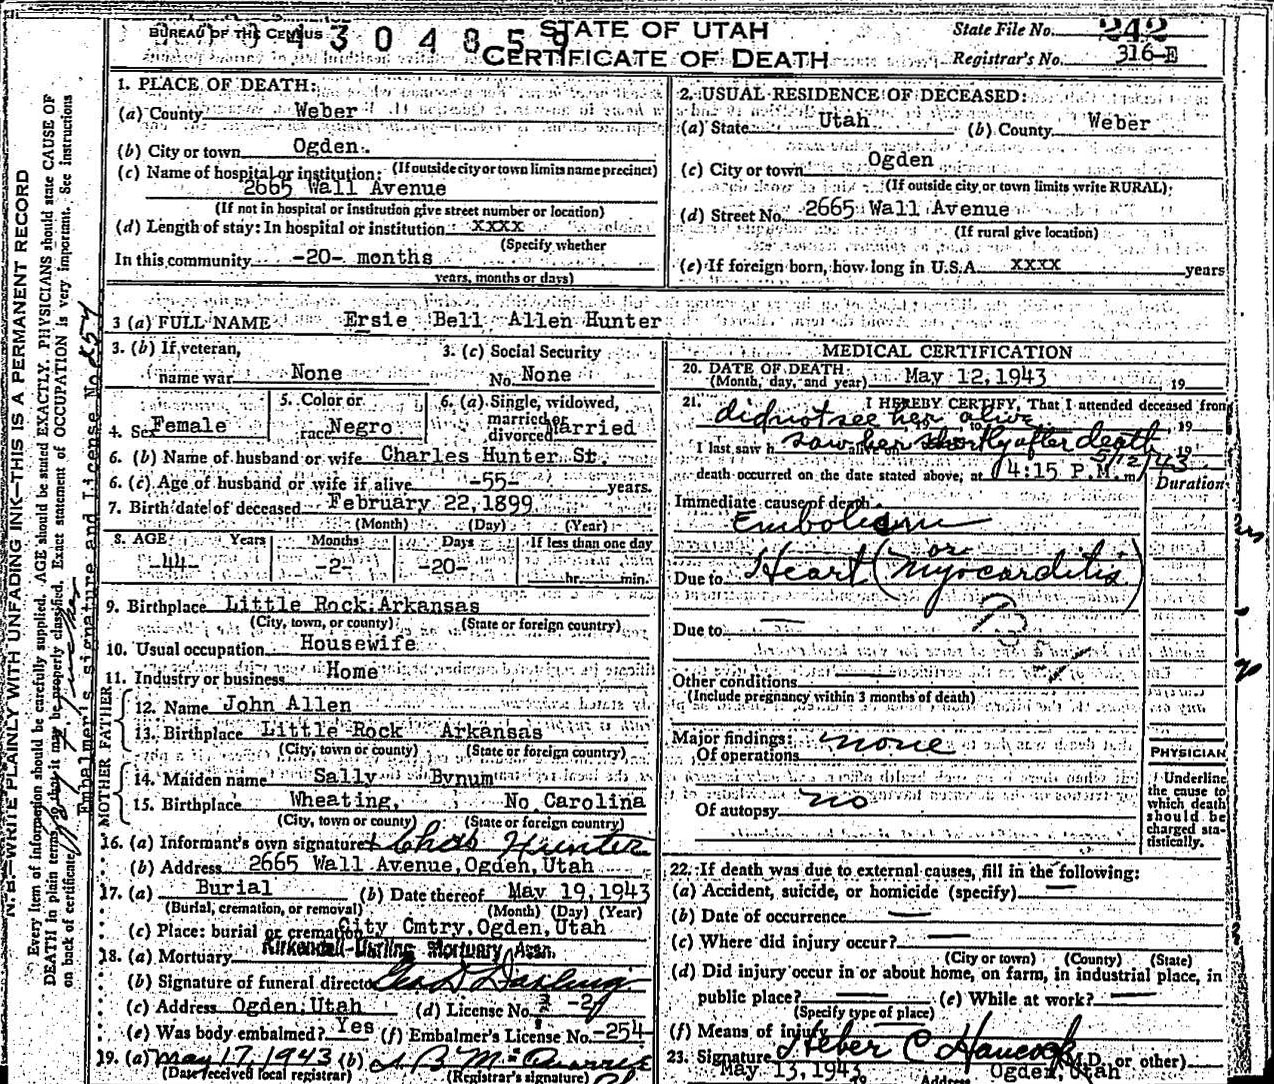 BUREAU OF THE CENSUS
4 3 0 4 8 5 9
STATE OF UTAH
CERTIFICATE OF DEATH
State File No. 242
Registrar's No. 316-E
1. PLACE OF DEATH:
(a) County Weber
(b) City or town Ogden.
(If outside city or town limits name precinct)
(c) Name of hospital or institution:
2665 Wall Avenue
(If not in hospital or institution give street number or location)
(d) Length of stay: In hospital or institution xxxx
(Specify whether
In this community -20- months
years, months or days)
2. USUAL RESIDENCE OF DECEASED:
(a) State Utah (b) County Weber
(c) City or town Ogden
(If outside city or town limits write RURAL)
(d) Street No. 2665 Wall Avenue
(If rural give location)
(e) If foreign born, how long in U.S.A. xxxx years
3 (a) FULL NAME Ersie Bell Allen Hunter
3. (b) If veteran,
name war None
3. (c) Social Security
No. None
4. Sex Female
5. Color or
race Negro
6. (a) Single, widowed,
married or
divorced Married
6. (b) Name of husband or wife Charles Hunter Sr.
6. (c) Age of husband or wife if alive -55- years.
7. Birth date of deceased February 22, 1899
(Month) (Day) (Year)
8. AGE Years Months Days If less than one day
-44- -2- -20- hr. min.
9. Birthplace Little Rock, Arkansas
(City, town, or county) (State or foreign country)
10. Usual occupation Housewife
11. Industry or business Home
FATHER
12. Name John Allen
13. Birthplace Little Rock Arkansas
(City, town or county) (State or foreign country)
MOTHER
14. Maiden name Sally Bynum
15. Birthplace Wheating, No. Carolina
(City, town or county) (State or foreign country)
16. (a) Informant's own signature Chas Hunter
(b) Address 2665 Wall Avenue, Ogden, Utah
17. (a) Burial (b) Date thereof May 19, 1943
(Burial, cremation, or removal) (Month) (Day) (Year)
(c) Place: burial or cremation City Cmtry, Ogden, Utah
18. (a) Mortuary Kirkendall-Darling Mortuary Assn.
(b) Signature of funeral director Geo D Darling
(c) Address Ogden, Utah (d) License No. -2
(e) Was body embalmed? Yes (f) Embalmer's License No. -254-
19. (a) May 17, 1943 (b)
(Date received local registrar) (Registrar's signature)
MEDICAL CERTIFICATION
20. DATE OF DEATH:
(Month, day, and year) May 12, 1943 19
21. I HEREBY CERTIFY, That I attended deceased from
did not see her alive to 19
I last saw h alive on 19
saw her shortly after death
5/12/43
death occurred on the date stated above, at 4:15 P.M. m
Duration
Immediate cause of death
Embolism
or
Due to Heart (myocarditis)
Due to
Other conditions
(Include pregnancy within 3 months of death)
Major findings:
Of operations none
Of autopsy no
PHYSICIAN
Underline
the cause to
which death
should be
charged sta-
tistically.
22. If death was due to external causes, fill in the following:
(a) Accident, suicide, or homicide (specify)
(b) Date of occurrence
(c) Where did injury occur?
(City or town) (County) (State)
(d) Did injury occur in or about home, on farm, in industrial place, in
public place? (e) While at work?
(Specify type of place)
(f) Means of injury
23. Signature Heber C Hancock (M.D. or other)
May 13, 1943 19 Address Ogden, Utah
N. B.—WRITE PLAINLY WITH UNFADING INK—THIS IS A PERMANENT RECORD
Every item of information should be carefully supplied. AGE should be stated EXACTLY. PHYSICIANS should state CAUSE OF
DEATH in plain terms, so that it may be properly classified. Exact statement of OCCUPATION is very important. See instructions
on back of certificate.
Embalmer's signature and License No. 254